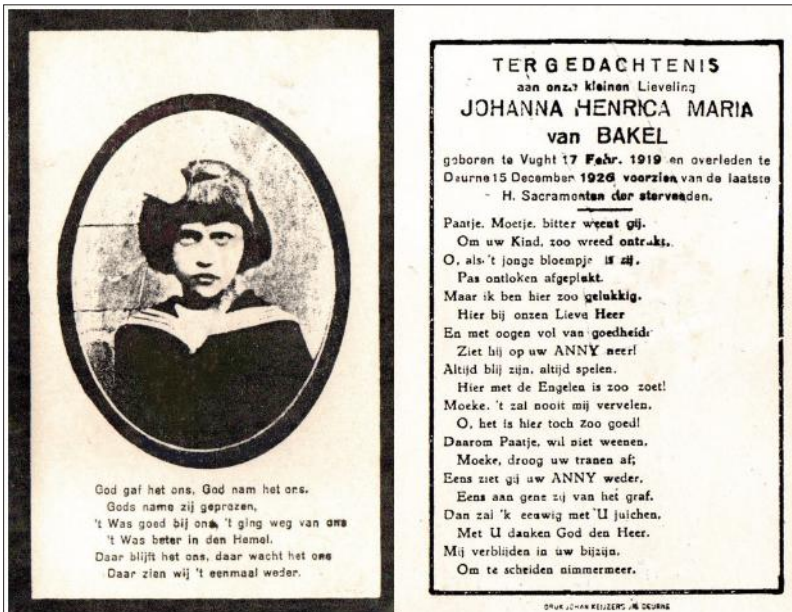 God gaf het ons, God nam het ons.
Gods name zij geprezen,
't Was goed bij ons, 't ging weg van ons
't Was beter in den Hemel.
Daar blijft het ons, daar wacht het ons
Daar zien wij 't eenmaal weder.
TER GEDACHTENIS
aan onze kleinen Lieveling
JOHANNA HENRICA MARIA
van BAKEL
geboren te Vught 17 Febr. 1919 en overleden te
Deurne 15 December 1926 voorzien van de laatste
H. Sacramenten der stervenden.
Paatje, Moetje, bitter weent gij.
Om uw Kind, zoo wreed ontrukt.
O, als 't jonge bloempje is zij,
Pas ontloken afgeplukt.
Maar ik ben hier zoo gelukkig.
Hier bij onzen Lieve Heer
En met oogen vol van goedheid
Ziet hij op uw ANNY neer!
Altijd blij zijn, altijd spelen.
Hier met de Engelen is zoo zoet!
Moeke, 't zal nooit mij vervelen,
O, het is hier toch zoo goed!
Daarom Paatje, wil niet weenen,
Moeke, droog uw tranen af;
Eens ziet gij uw ANNY weder,
Eens aan gene zij van het graf.
Dan zal 'k eeuwig met U juichen,
Met U danken God den Heer.
Mij verblijden in uw bijzijn,
Om te scheiden nimmermeer.
DRUK JOHAN KEIJZERS DEURNE